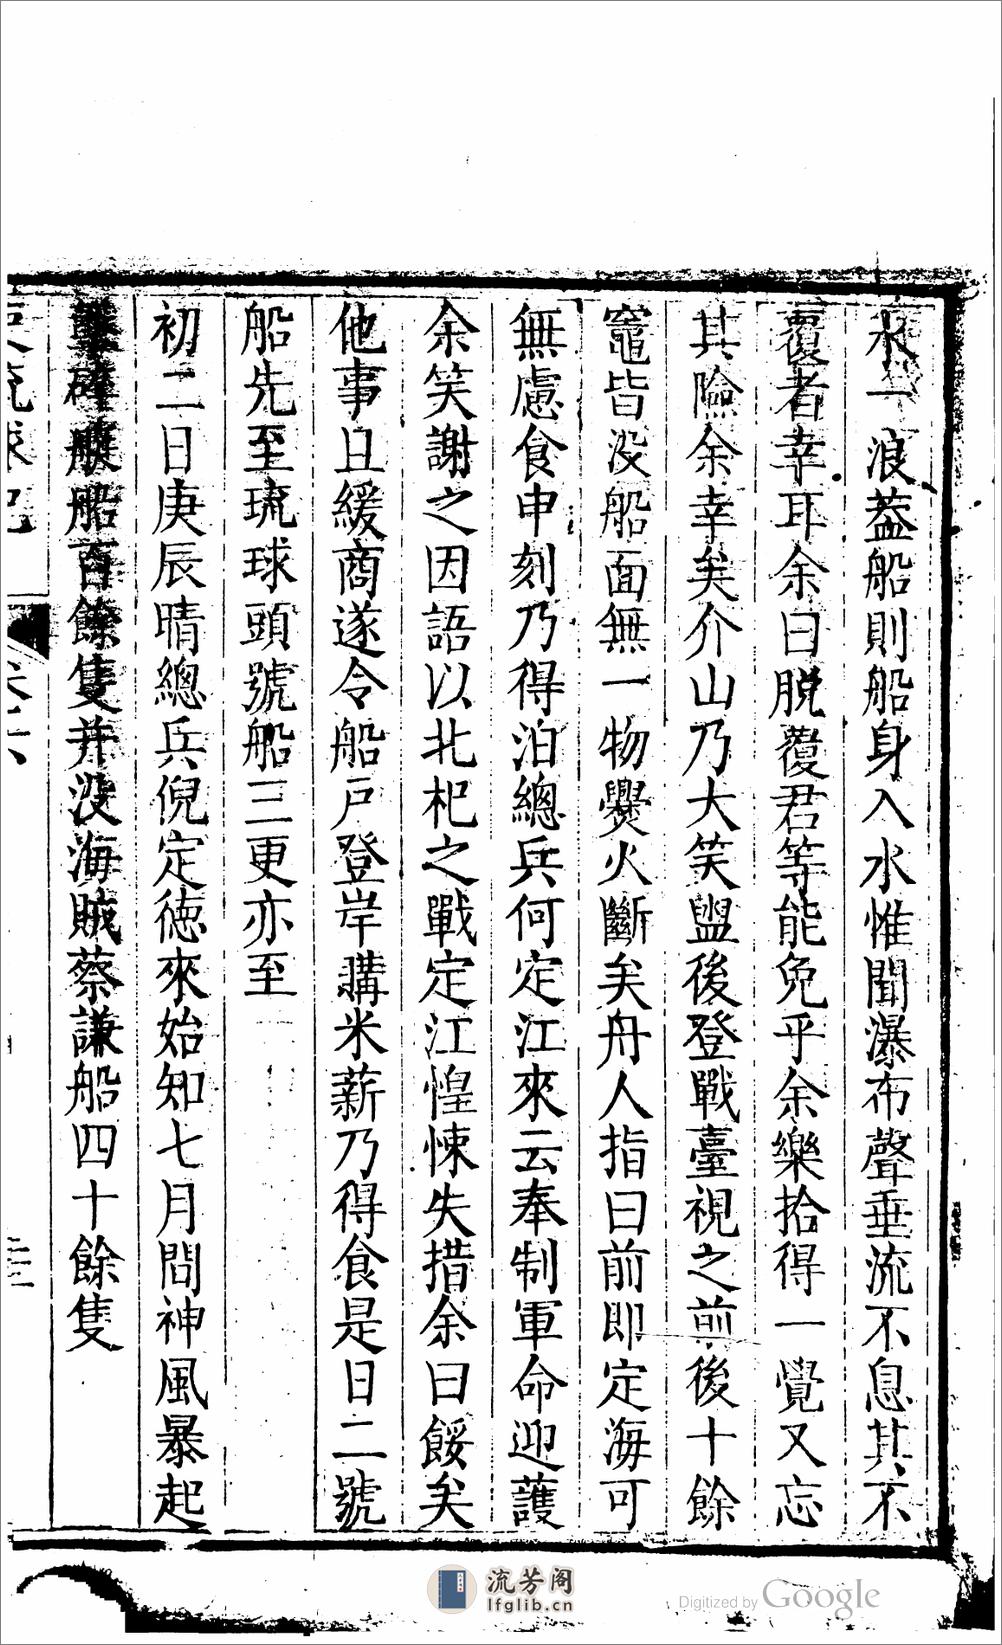 水一浪蓋船則船身入水惟聞瀑布聲垂流不息其不
覆者幸耳余曰脫覆君等能免乎余樂拾得一覺又忘
其險余幸矣介山乃大笑盥後登戰臺視之前後十餘
竈皆沒船面無一物爨火斷矣舟人指曰前即定海可
無慮食申刻乃得泊總兵何定江來云奉制軍命迎護
余笑謝之因語以北杷之戰定江惶悚失措余曰餒矣
他事且緩商遂令船戶登岸購米薪乃得食是日二號
船先至琉球頭號船三更亦至
初二日庚辰晴總兵倪定德來始知七月問神風暴起
擊碎艇船百餘隻并沒海賊蔡謙船四十餘隻
流芳阁
lfglib.cn
Digitized by Google